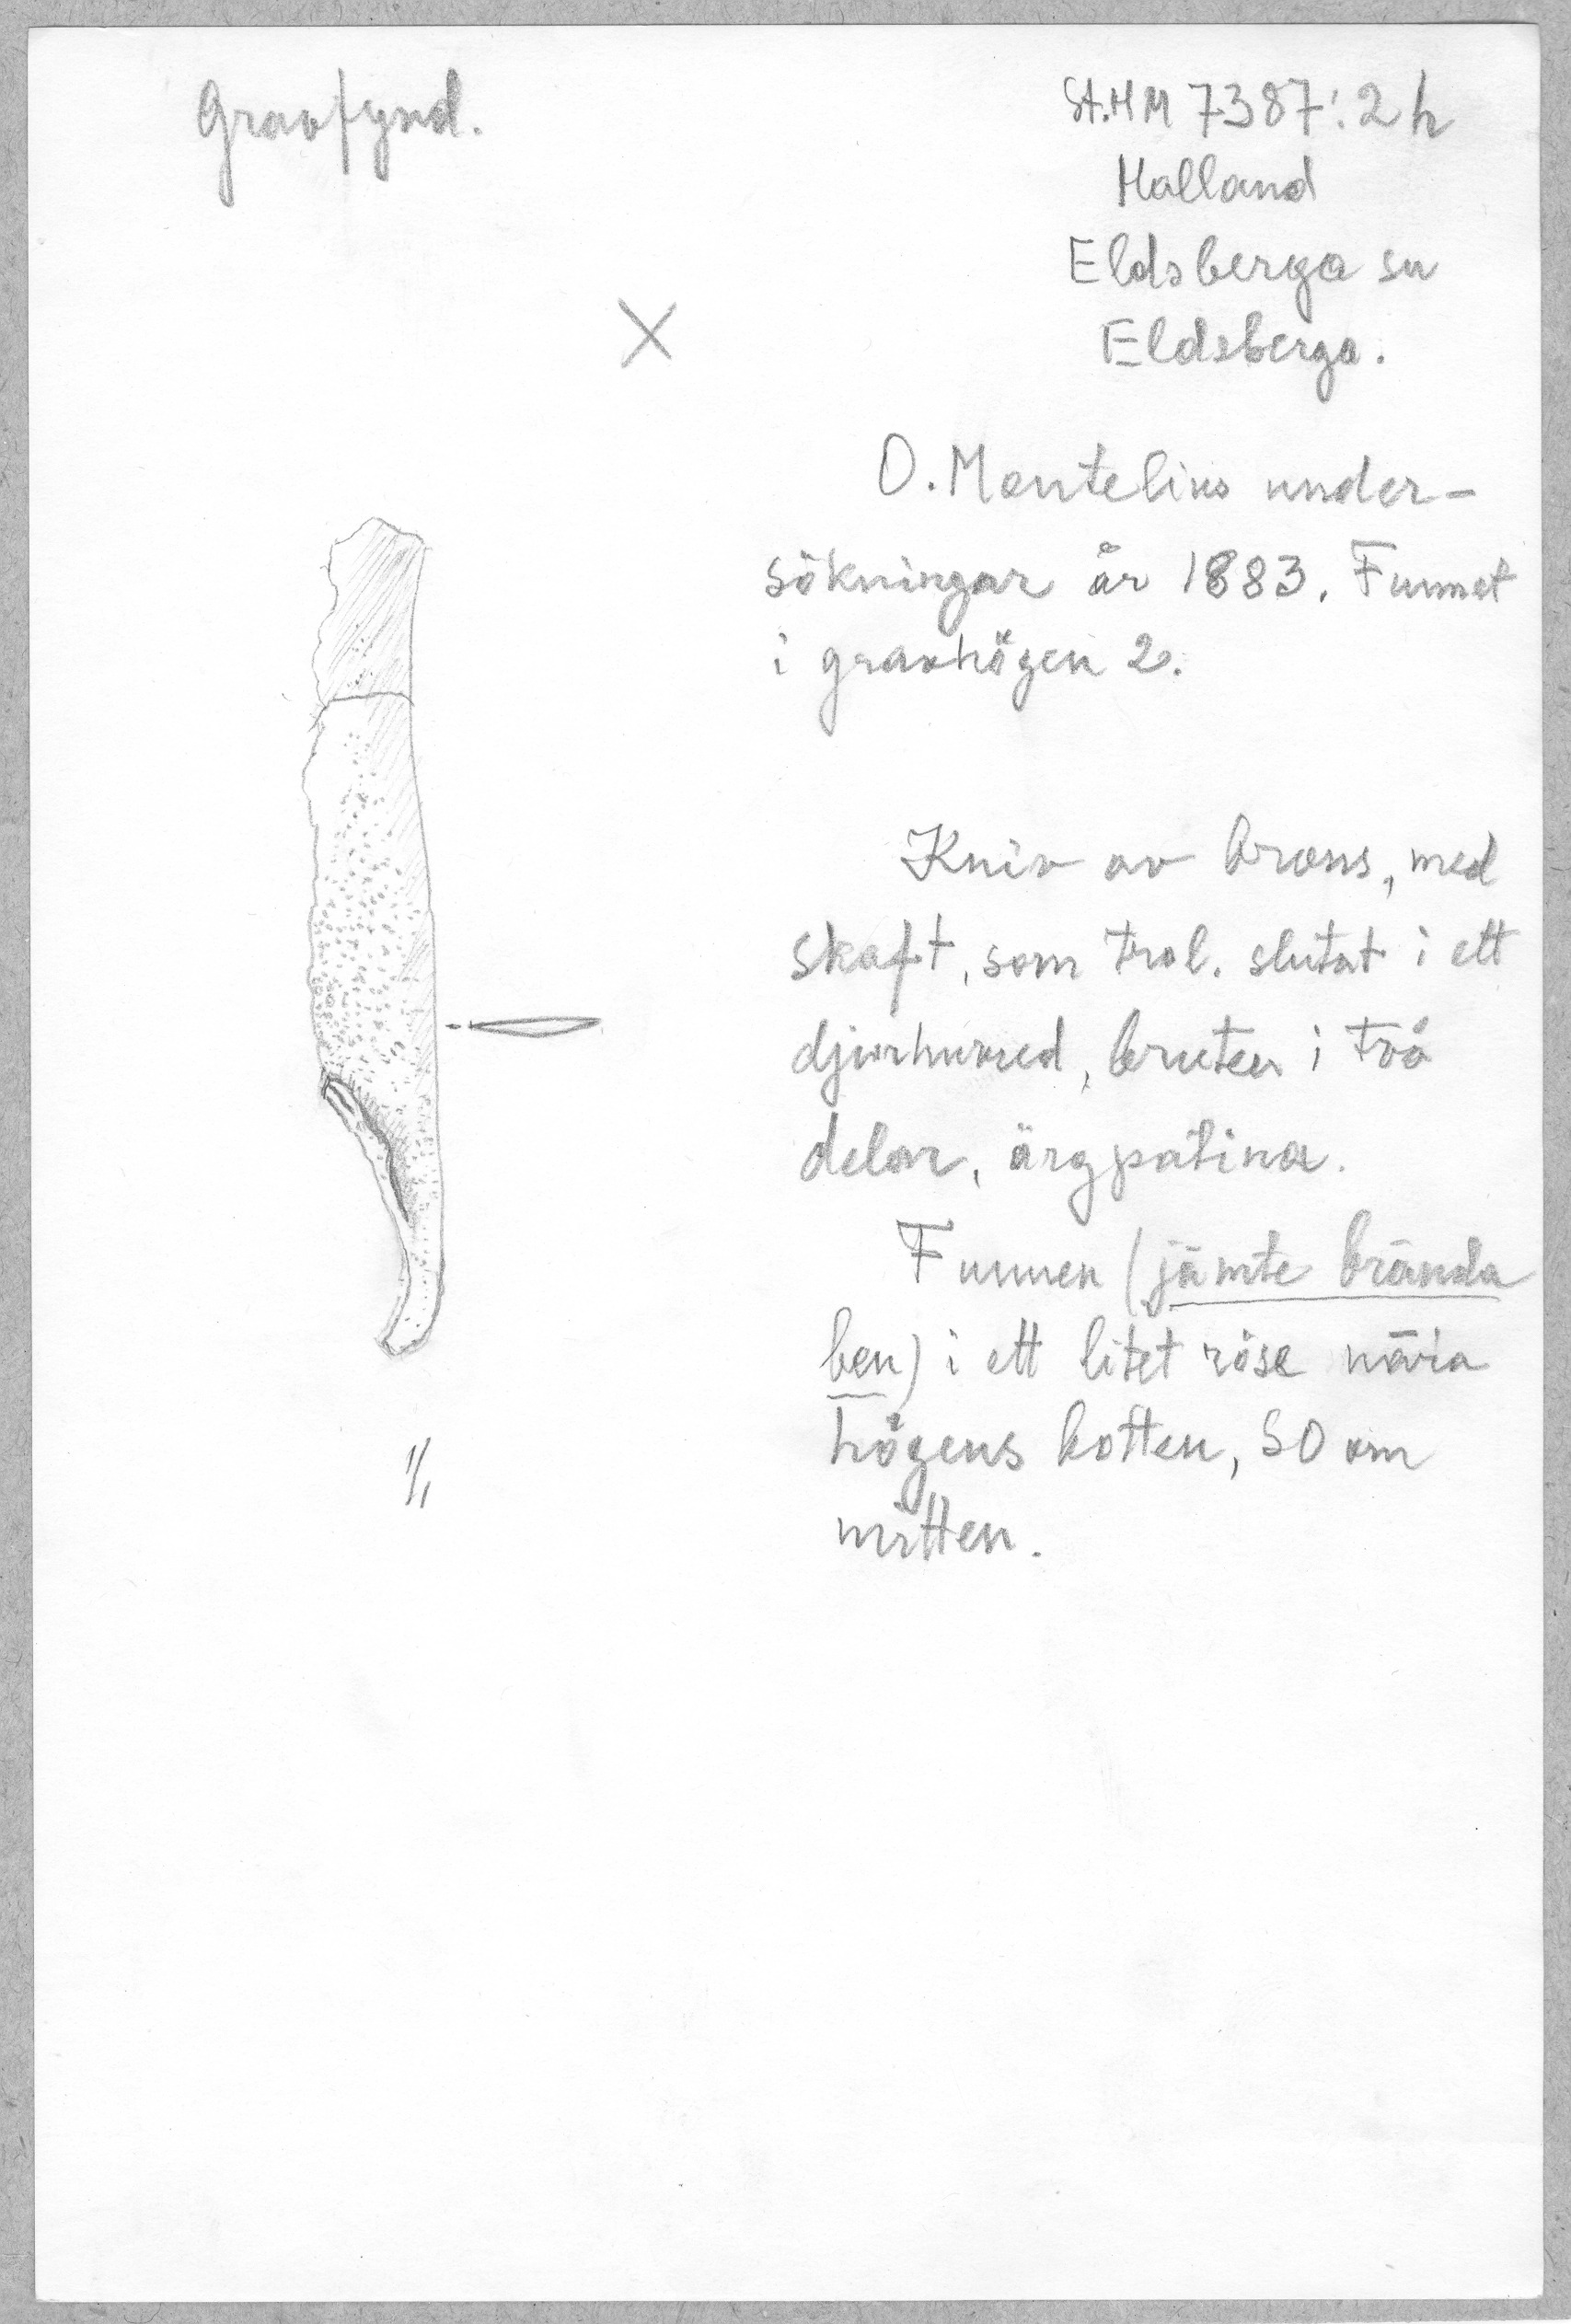 Gravfynd.
St.HM 7387:2h
Halland
Eldsberga sn
Eldsberga.
X
O. Montelius under-
sökningar år 1883. Funnet
i gravhögen 2.
Kniv av brons, med
skaft, som trol. slutat i ett
djurhuvud, bruten i två
delar, ärgpatina.
Funnen (jämte brända
ben) i ett litet röse nära
högens botten, SO om
mitten.
1/1